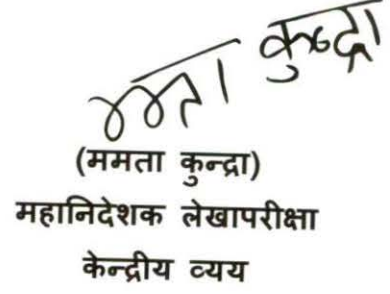 ममता कुन्द्रा
(ममता कुन्द्रा)
महानिदेशक लेखापरीक्षा
केन्द्रीय व्यय